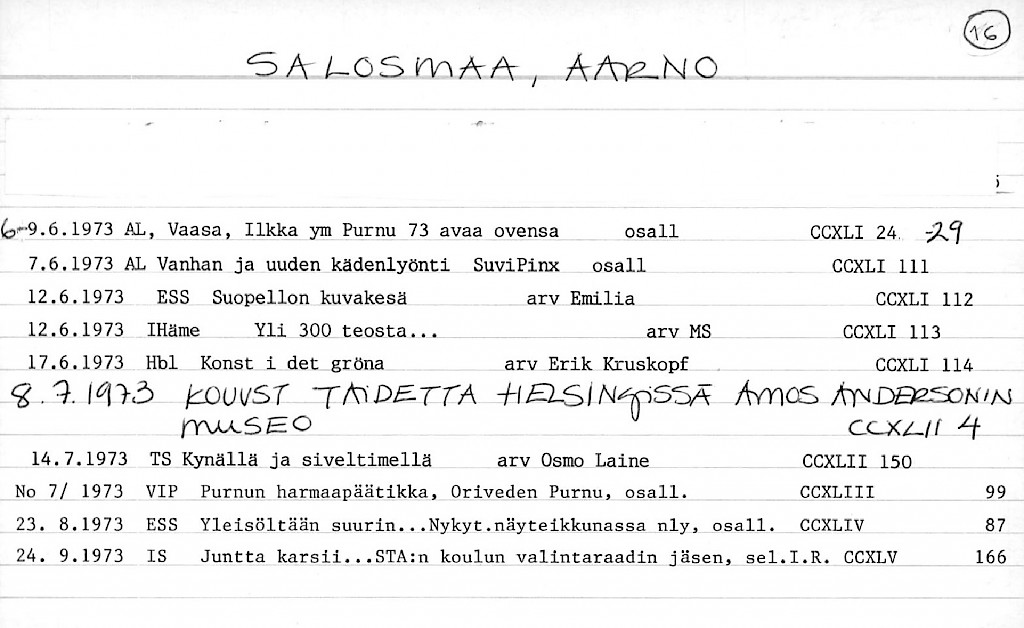 16
SALOSMAA, AARNO
6-9.6.1973 AL, Vaasa, Ilkka ym Purnu 73 avaa ovensa osall CCXLI 24 -29
7.6.1973 AL Vanhan ja uuden kädenlyönti SuviPinx osall CCXLI 111
12.6.1973 ESS Suopellon kuvakesä arv Emilia CCXLI 112
12.6.1973 IHäme Yli 300 teosta... arv MS CCXLI 113
17.6.1973 Hbl Konst i det gröna arv Erik Kruskopf CCXLI 114
8.7.1973 KOUVST TAIDETTA HELSINGISSÄ AMOS ANDERSONIN
MUSEO CCXLII 4
14.7.1973 TS Kynällä ja siveltimellä arv Osmo Laine CCXLII 150
No 7/ 1973 VIP Purnun harmaapäätikka, Oriveden Purnu, osall. CCXLIII 99
23. 8.1973 ESS Yleisöltään suurin...Nykyt.näyteikkunassa nly, osall. CCXLIV 87
24. 9.1973 IS Juntta karsii...STA:n koulun valintaraadin jäsen, sel.I.R. CCXLV 166